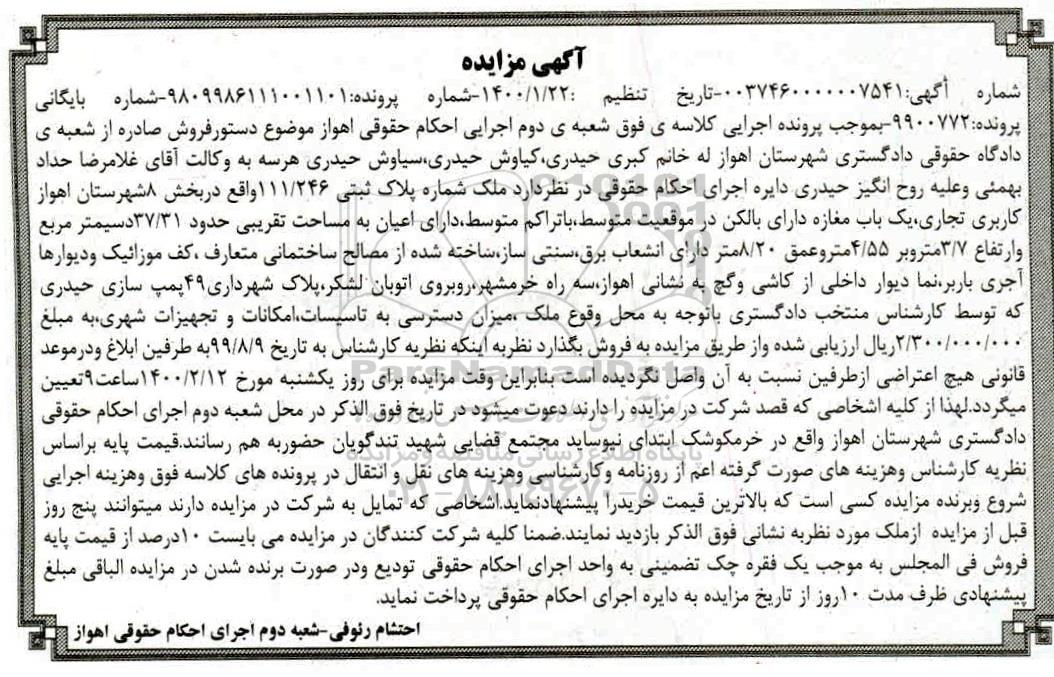 آگهی مزایده
شماره آگهی:۰۰۳۷۴۶۰۰۰۰۰۰۷۵۴۱-تاریخ تنظیم :۱۴۰۰/۱/۲۲-شماره پرونده:۹۸۰۹۹۸۶۱۱۱۰۰۱۱۰۱-شماره بایگانی
پرونده:۹۹۰۰۷۷۲-بموجب پرونده اجرایی کلاسه ی فوق شعبه ی دوم اجرایی احکام حقوقی اهواز موضوع دستورفروش صادره از شعبه ی
دادگاه حقوقی دادگستری شهرستان اهواز له خانم کبری حیدری،کیاوش حیدری،سیاوش حیدری هرسه به وکالت آقای غلامرضا حداد
بهمئی وعلیه روح انگیز حیدری دایره اجرای احکام حقوقی در نظردارد ملک شماره پلاک ثبتی ۱۱۱/۲۴۶واقع دربخش ۸شهرستان اهواز
کاربری تجاری،یک باب مغازه دارای بالکن در موقعیت متوسط،باتراکم متوسط،دارای اعیان به مساحت تقریبی حدود ۳۷/۳۱دسیمتر مربع
وارتفاع ۳/۷متروبر ۴/۵۵متروعمق ۸/۲۰متر دارای انشعاب برق،سنتی ساز،ساخته شده از مصالح ساختمانی متعارف ،کف موزائیک ودیوارها
آجری باربر،نما دیوار داخلی از کاشی وگچ به نشانی اهواز،سه راه خرمشهر،روبروی اتوبان لشکر،پلاک شهرداری۴۹پمپ سازی حیدری
که توسط کارشناس منتخب دادگستری باتوجه به محل وقوع ملک ،میزان دسترسی به تاسیسات،امکانات و تجهیزات شهری،به مبلغ
۲/۳۰۰/۰۰۰/۰۰۰ریال ارزیابی شده واز طریق مزایده به فروش بگذارد نظربه اینکه نظریه کارشناس به تاریخ ۹۹/۸/۹به طرفین ابلاغ ودرموعد
قانونی هیچ اعتراضی ازطرفین نسبت به آن واصل نگردیده است بنابراین وقت مزایده برای روز یکشنبه مورخ ۱۴۰۰/۲/۱۲ساعت۹تعیین
میگردد.لهذا از کلیه اشخاصی که قصد شرکت در مزایده را دارند دعوت میشود در تاریخ فوق الذکر در محل شعبه دوم اجرای احکام حقوقی
دادگستری شهرستان اهواز واقع در خرمکوشک ابتدای نیوساید مجتمع قضایی شهید تندگویان حضوربه هم رسانند.قیمت پایه براساس
نظریه کارشناس وهزینه های صورت گرفته اعم از روزنامه وکارشناسی وهزینه های نقل و انتقال در پرونده های کلاسه فوق وهزینه اجرایی
شروع وبرنده مزایده کسی است که بالاترین قیمت خریدرا پیشنهادنماید.اشخاصی که تمایل به شرکت در مزایده دارند میتوانند پنج روز
قبل از مزایده ازملک مورد نظربه نشانی فوق الذکر بازدید نمایند.ضمنا کلیه شرکت کنندگان در مزایده می بایست ۱۰درصد از قیمت پایه
فروش فی المجلس به موجب یک فقره چک تضمینی به واحد اجرای احکام حقوقی تودیع ودر صورت برنده شدن در مزایده الباقی مبلغ
پیشنهادی ظرف مدت ۱۰روز از تاریخ مزایده به دایره اجرای احکام حقوقی پرداخت نماید.
احتشام رئوفی-شعبه دوم اجرای احکام حقوقی اهواز
ParsNamadData
پایگاه اطلاع رسانی مناقصه و مزایده
۰۲۱-۸۸۳۴۹۶۷۰-۵